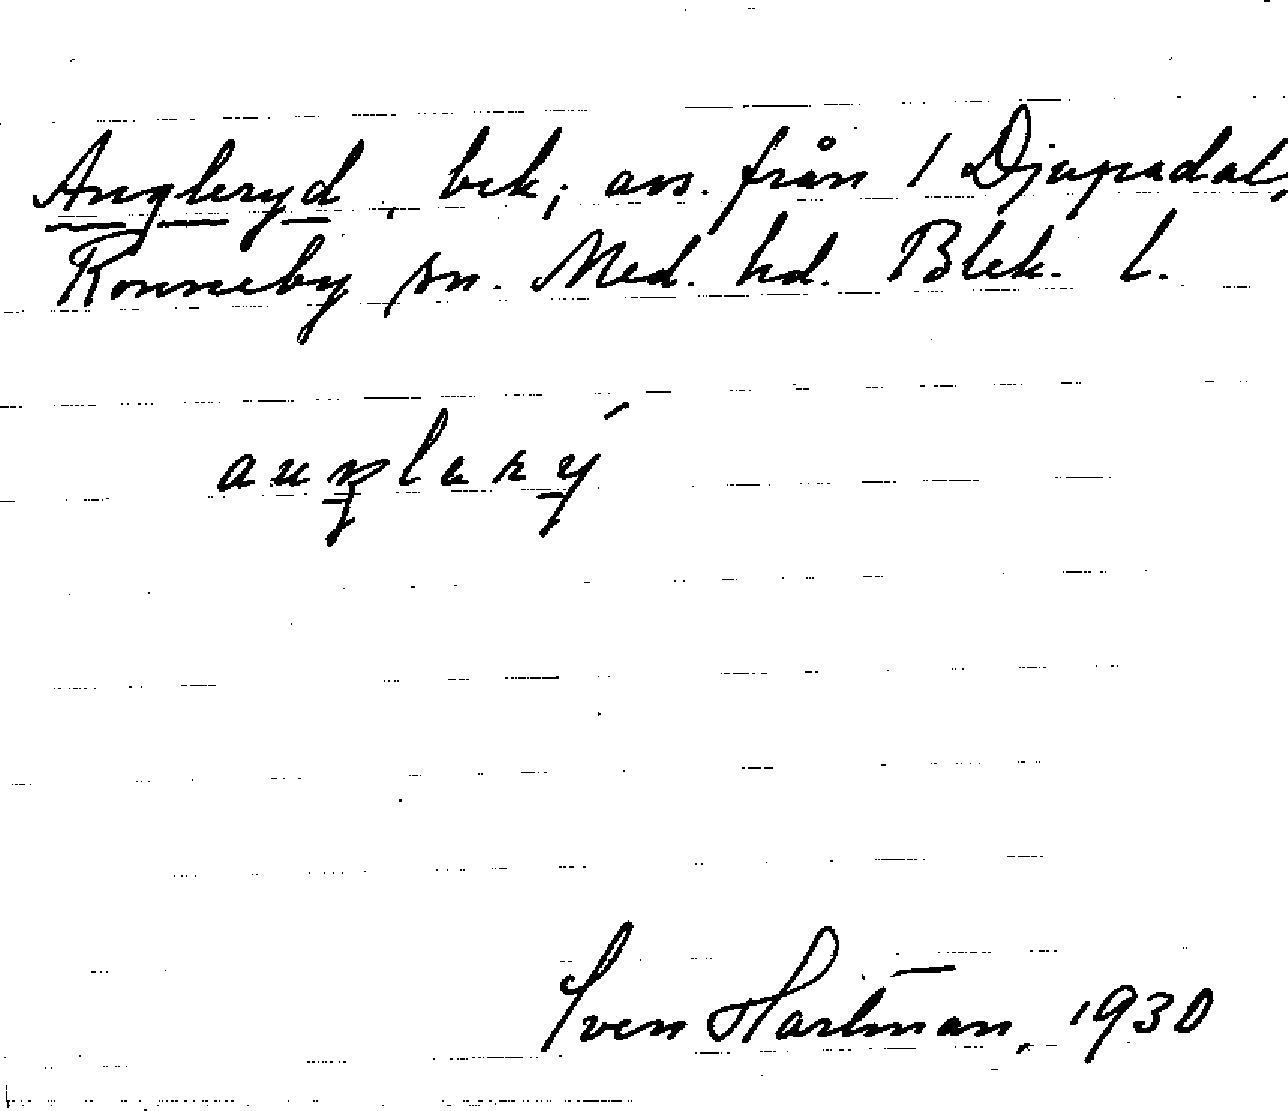 Angleryd, bek; avs. från 1 Djupadal,
Ronneby sn. Med. hd. Blek. l.
Sven Hartman, 1930